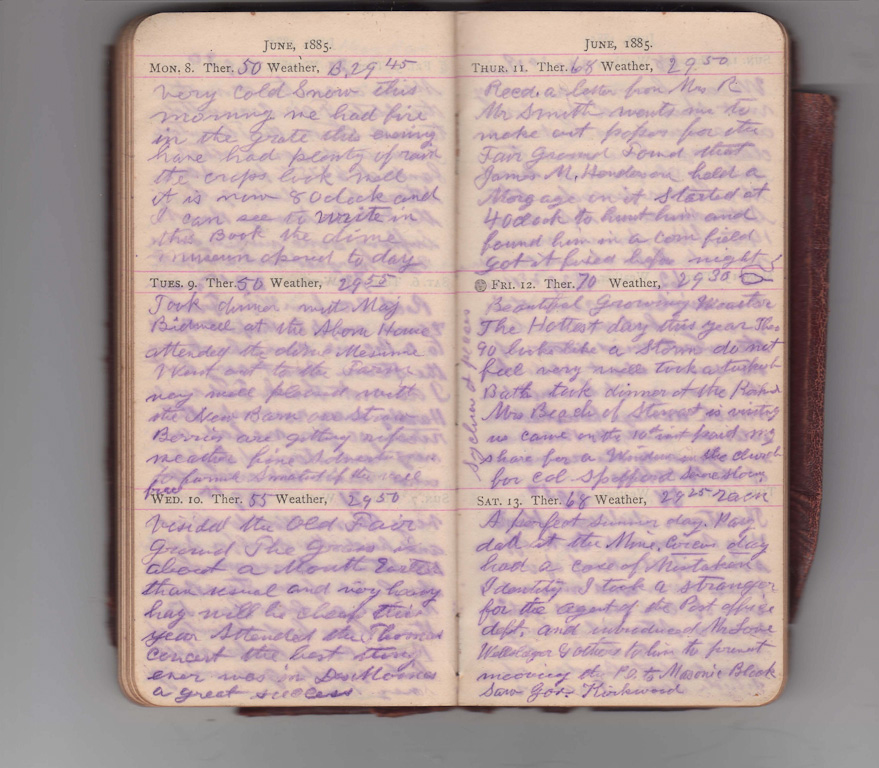 JUNE, 1885.
MON. 8. Ther. 50 Weather, B. 29 45
very cold Snow this
morning we had fire
in the grate this evening
have had plenty of rain
the crops look well
it is now 8 Oclock and
I can see to write in
this Book the dime
museum opened to day
TUES. 9. Ther. 50 Weather, 29 55
Took dinner with Maj
Bidwell at the Home
attended the dime Museume
Went out to the Farm
very well pleased with
the New Barn our Straw
Berries are getting ripe
weather fine
to
free
WED. 10. Ther. 55 Weather, 29 50
Visited the Old Fair
Ground The Grass is
about a Month
than usual and very heavy
hay will be cheap this
year Attended the Thomas
concert the best thing
ever was in DesMoines
a great success
JUNE, 1885.
THUR. 11. Ther. 68 Weather, 29 50
Recd a letter from Mrs R
Mr Smith wants me to
make out papers for the
Fair Ground Found that
James M. Henderson held a
Morgage on it Started at
4 Oclock to hunt him and
found him in a corn field
got it fixed before night
FRI. 12. Ther. 70 Weather, 29 30
Beautiful Growing Weather
The Hottest day this year Ther
90 looks like a Storm do not
feel very well took a turkish
Bath took dinner at the
Mrs Beach of Stewart is visiting
us came on the 10th inst paid my
share for a Window in the church
for Col Spofford
SAT. 13. Ther. 68 Weather, 29 25
A perfect summer day.
dall at the Mine, Circus day
had a case of Mistaken
Identity I took a stranger
for the agent of the Post office
dept. and introduced Mr Lowe
Wellslager & others to him to prevent
mooving the P.O. to Masonic Block
Saw Gov. Kirkwood